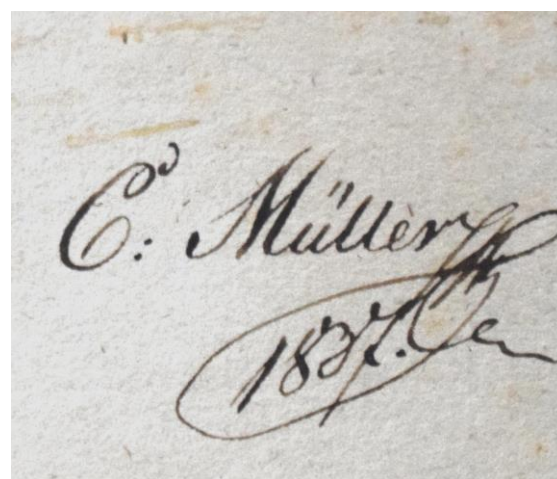 C: Müller
1837.